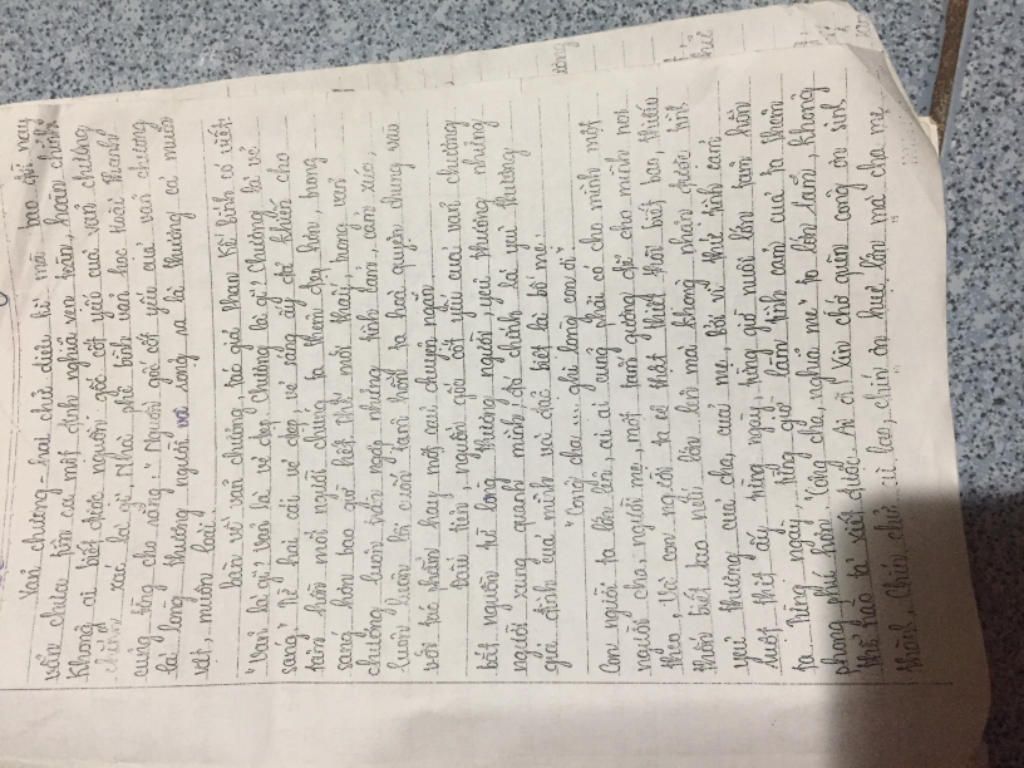 Văn chương - hai chữ diệu kì mà bao đời nay
vẫn chưa tìm ra một định nghĩa vẹn toàn, hoàn chỉnh
Không ai biết được nguồn gốc cốt yếu của văn chương
chính xác là gì, Nhà phê bình văn học Hoài Thanh
cũng từng cho rằng: "Nguồn gốc cốt yếu của văn chương
là lòng thương người và rộng ra là thương cả muôn
vật, muôn loài.
bàn về văn chương, tác giả Phan Kế Bính có viết:
"Văn là gì? Văn là vẻ đẹp. Chương là gì? Chương là vẻ
sáng" Nhờ hai cái vẻ đẹp, vẻ sáng ấy đã khiến cho
tâm hồn mỗi người chúng ta thêm đẹp hơn, trong
sáng hơn bao giờ hết. Thế mới thấy, trong văn
chương luôn tràn ngập những tình cảm, cảm xúc,
luôn luôn lôi cuốn tâm hồn ta hoà quyện chung vào
với tác phẩm hay một câu chuyện ngắn
Đầu tiên, nguồn gốc cốt yếu của văn chương
bắt nguồn từ lòng thương người, yêu thương những
người xung quanh mình, đó chính là yêu thương
gia đình của mình và đặc biệt là bố mẹ.
"Công cha ... ghi lòng con ơi"
Con người ta lớn lên, ai ai cũng phải có cho mình một
người cha, người mẹ, một tấm gương để cho mình noi
theo, Vì con người ta sẽ thật thiệt thòi biết bao, thiếu
thốn biết bao nếu lớn lên mà không nhận được tình
yêu thương của cha, của mẹ. Bởi vì thứ tình cảm
ruột thịt ấy từng ngày, từng giờ nuôi lớn tâm hồn
ta từng ngày, từng giờ làm tình cảm của ta thêm
phong phú hơn. "Công cha, nghĩa mẹ" to lớn lắm, không
thể nào tả xiết được. Ai ơi xin chớ quên công ơn sinh
thành. Chín chữ cù lao, chín ân huệ lớn mà cha mẹ